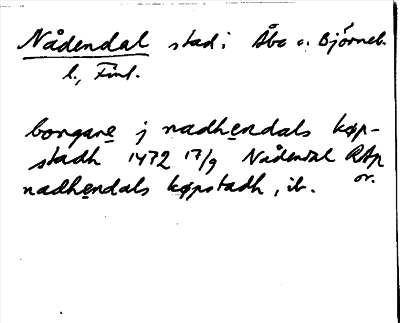 Nådendal stad i Åbo o. Björneb.
l., Finl.
borgare j nadhendals køp-
stadh 1472 17/9 Nådendal RAp
or.
nadhendals køpstadh, ib.